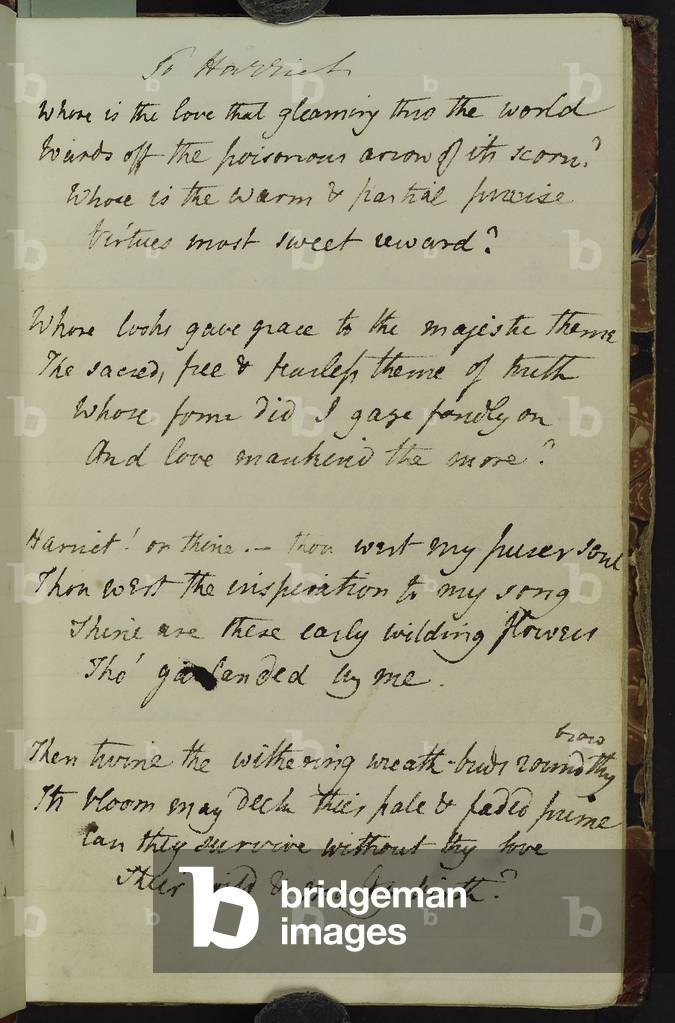 To Harriet
Whose is the love that gleaming thro the world
Wards off the poisonous arrow of its scorn?
Whose is the warm & partial praise
Virtues most sweet reward?
Whose looks gave grace to the majestic theme
The sacred, free & fearless theme of truth
Whose form did I gaze fondly on
And love mankind the more?
Harriet! on thine. – thou wert my purer soul
Thou wert the inspiration to my song
Thine are these early wilding flowers
Tho' garlanded by me.
Then twine the withering wreath-buds round thy brow
Its bloom may deck their pale & faded prime
Can they survive without thy love
Their wild & birth?
bridgeman
images